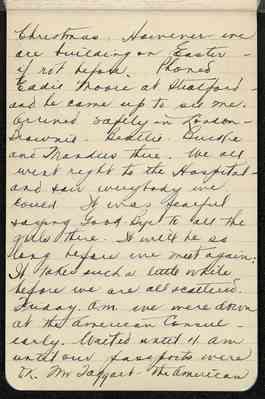 Christmas. However we
are building on Easter -
if not before. Phoned
Eadie Moore at Stratford -
and he came up to see me.
Arrived safely in London -
Brownie. Beattie. Buckie
and Manders there. We all
went right to the Hospital -
and saw everybody we
could. It was fearful
saying Good Bye to all the
girls there. It will be so
long before we meet again.
It takes such a little while
before we are all scattered.
Friday. a.m. we were down
at the American Consul -
early. Waited until 11 am
until our passports were
Mr Taggart - the American